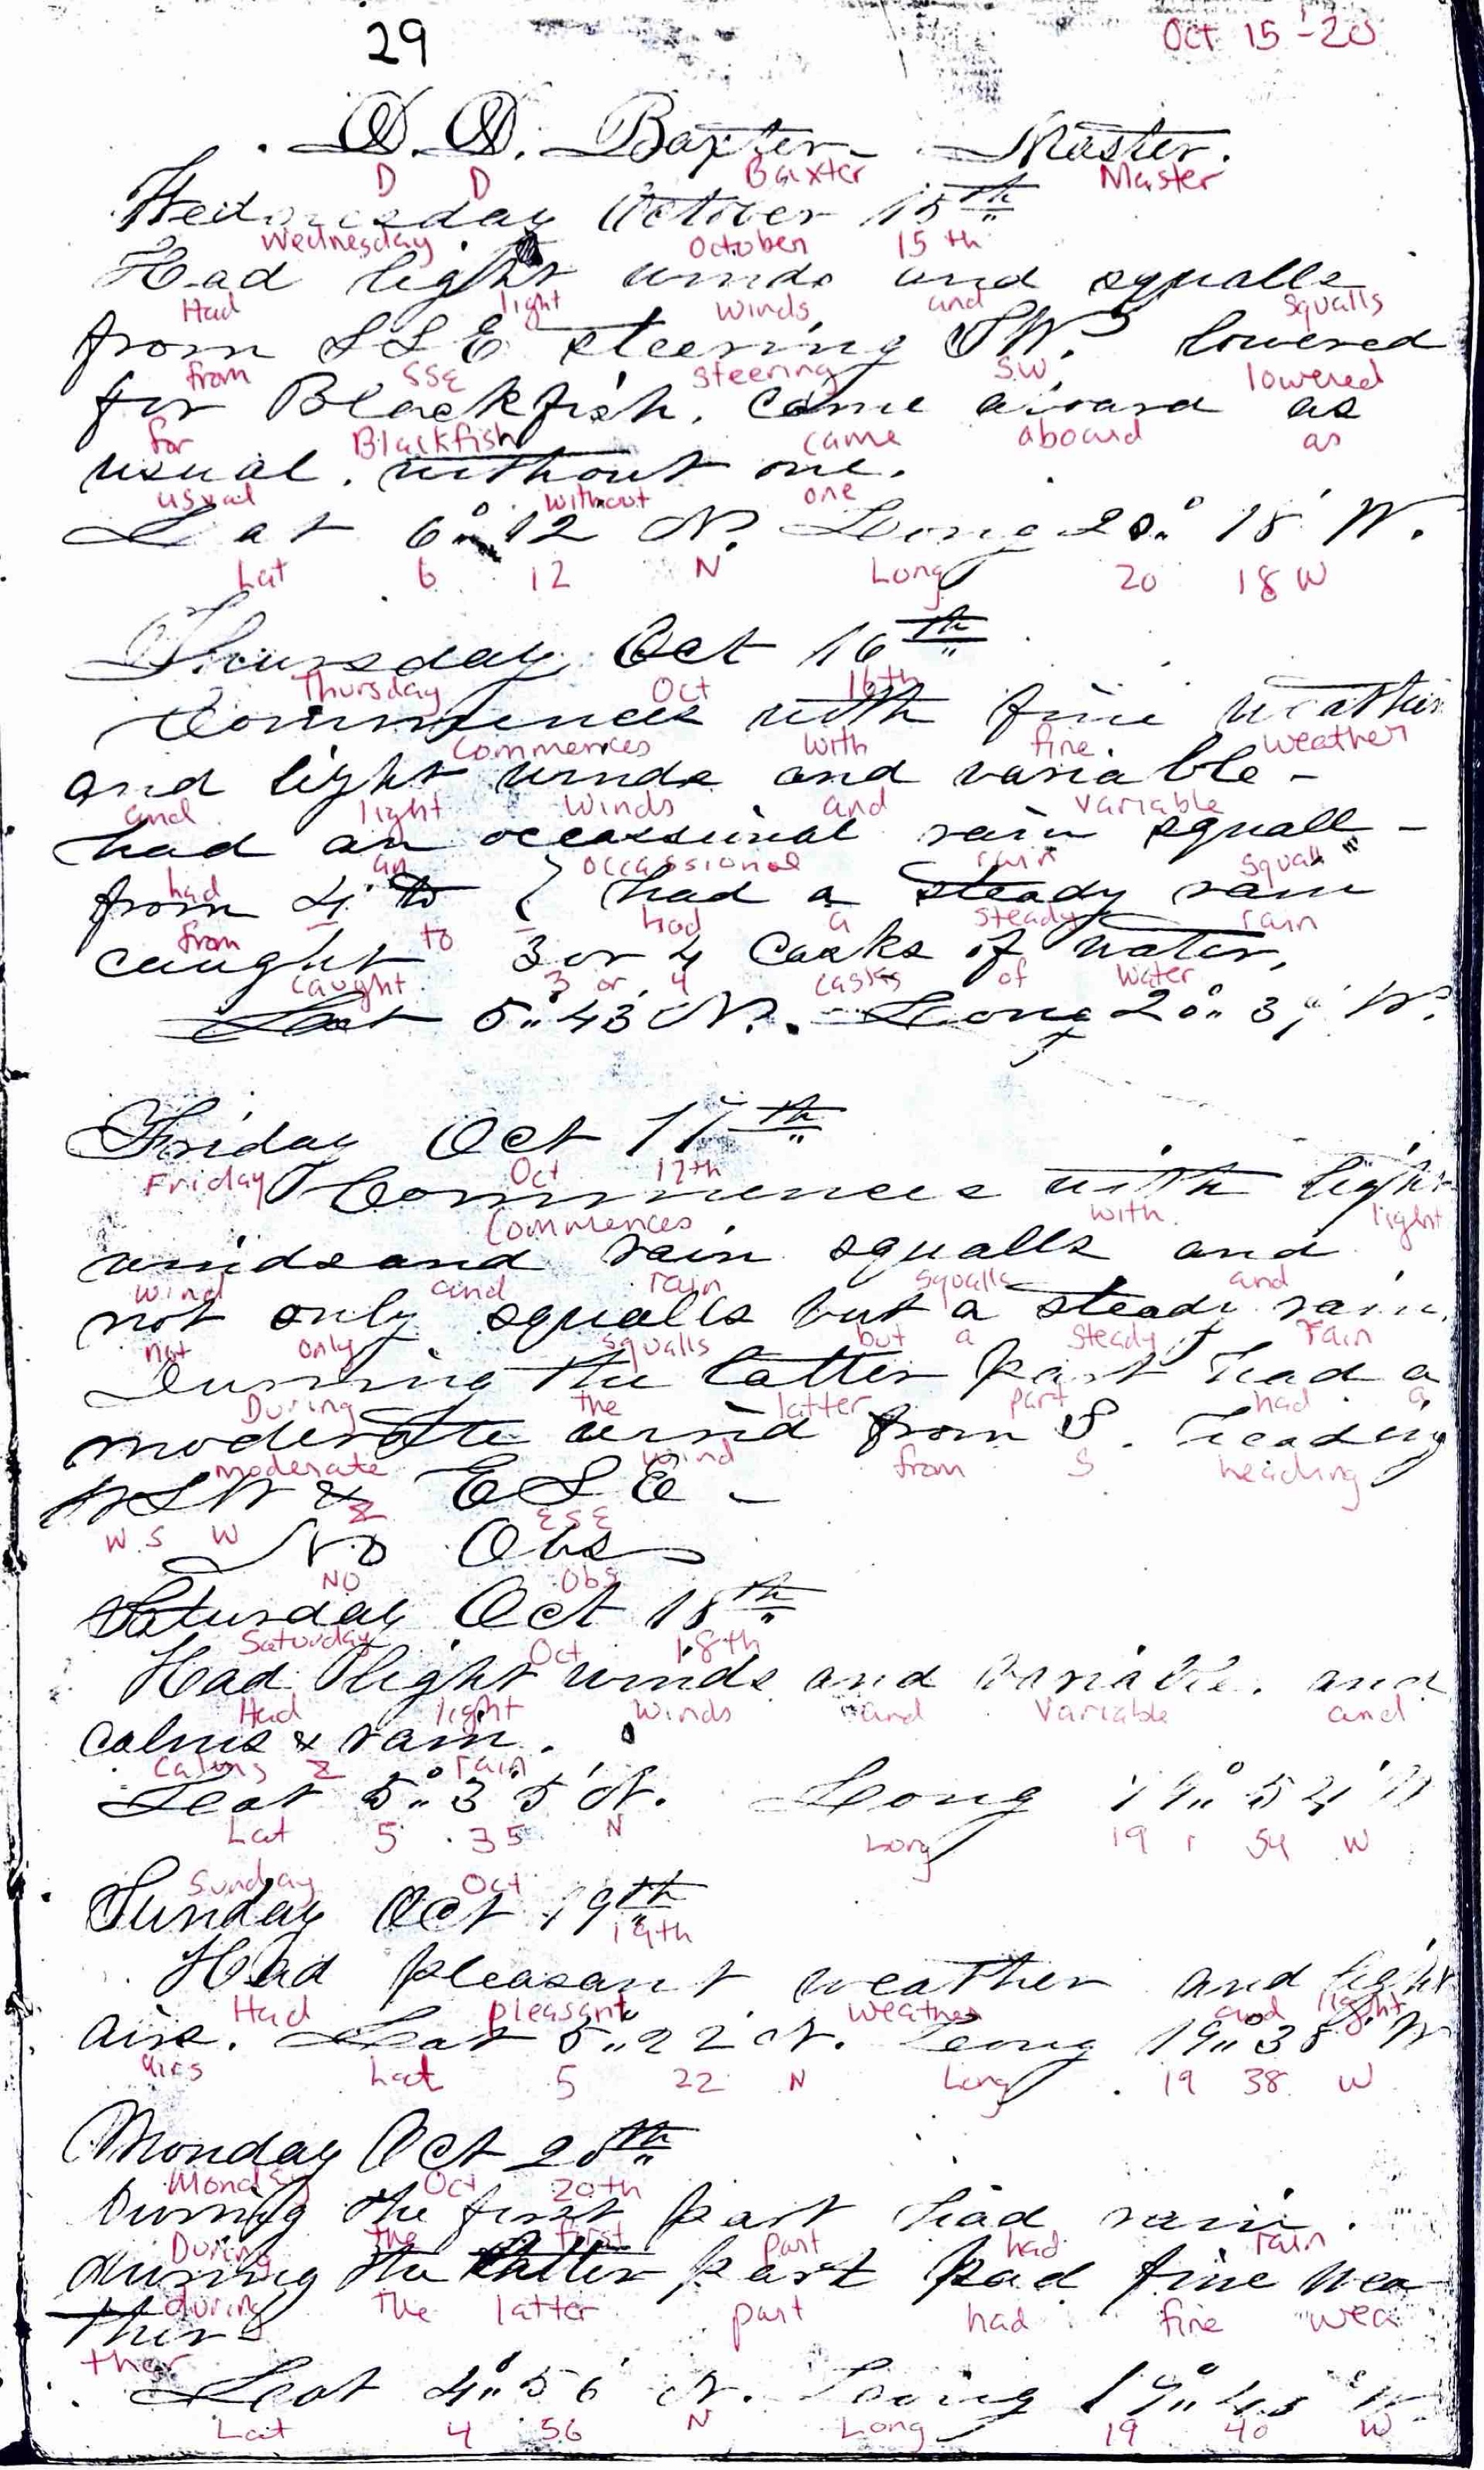 29
Oct 15-20
D. D. Baxter Master.
D D Baxter Master
Wednesday October 15th
Wednesday October 15th
Had light winds and squalls
Had light winds and squalls
from SSE steering SW. lowered
from SSE steering SW, lowered
for Blackfish. came aboard as
for Blackfish came aboard as
usual. without one.
usual without one
Lat 6° 12 N. Long 20° 18' W.
Lat 6 12 N Long 20 18 W
Thursday Oct 16th
Thursday Oct 16th
Commences with fine weather
Commences with fine weather
and light winds and variable -
and light winds and variable
had an occassional rain squall -
had an occassional rain squall
from 4 to had a steady rain
from to had a steady rain
caught 3 or 4 casks of water,
caught 3 or 4 casks of water
Lat 5° 43 N. Long 20° W.
Friday Oct 17th
Friday Oct 17th
Commences with light
Commences with light
winds and rain squalls and
wind and rain squalls and
not only squalls but a steady rain.
not only squalls but a steady rain
During the latter part had a
During the latter part had a
moderate wind from S. heading
moderate wind from S heading
WSW & ESE -
W S W & ESE
No Obs
NO Obs
Saturday Oct 18th
Saturday Oct 18th
Had light winds and variable. and
Had light winds and variable and
calms & rain.
calms & rain
Lat 5° 35' N. Long 19° 54' W
Lat 5 35 N Long 19 54 W
Sunday Oct
Sunday Oct 19th
19th
Had pleasant weather and light
Had pleasant weather and light
airs. Lat 5° 22 N. Long 19° 38' W
airs Lat 5 22 N Long 19 38 W
Monday Oct 20th
Monday Oct 20th
During the first part had rain.
During the first part had rain
during the latter part had fine wea
during the latter part had fine wea
ther
ther
Lat 4° 56' N. Long 19° W.
Lat 4 56 N Long 19 40 W